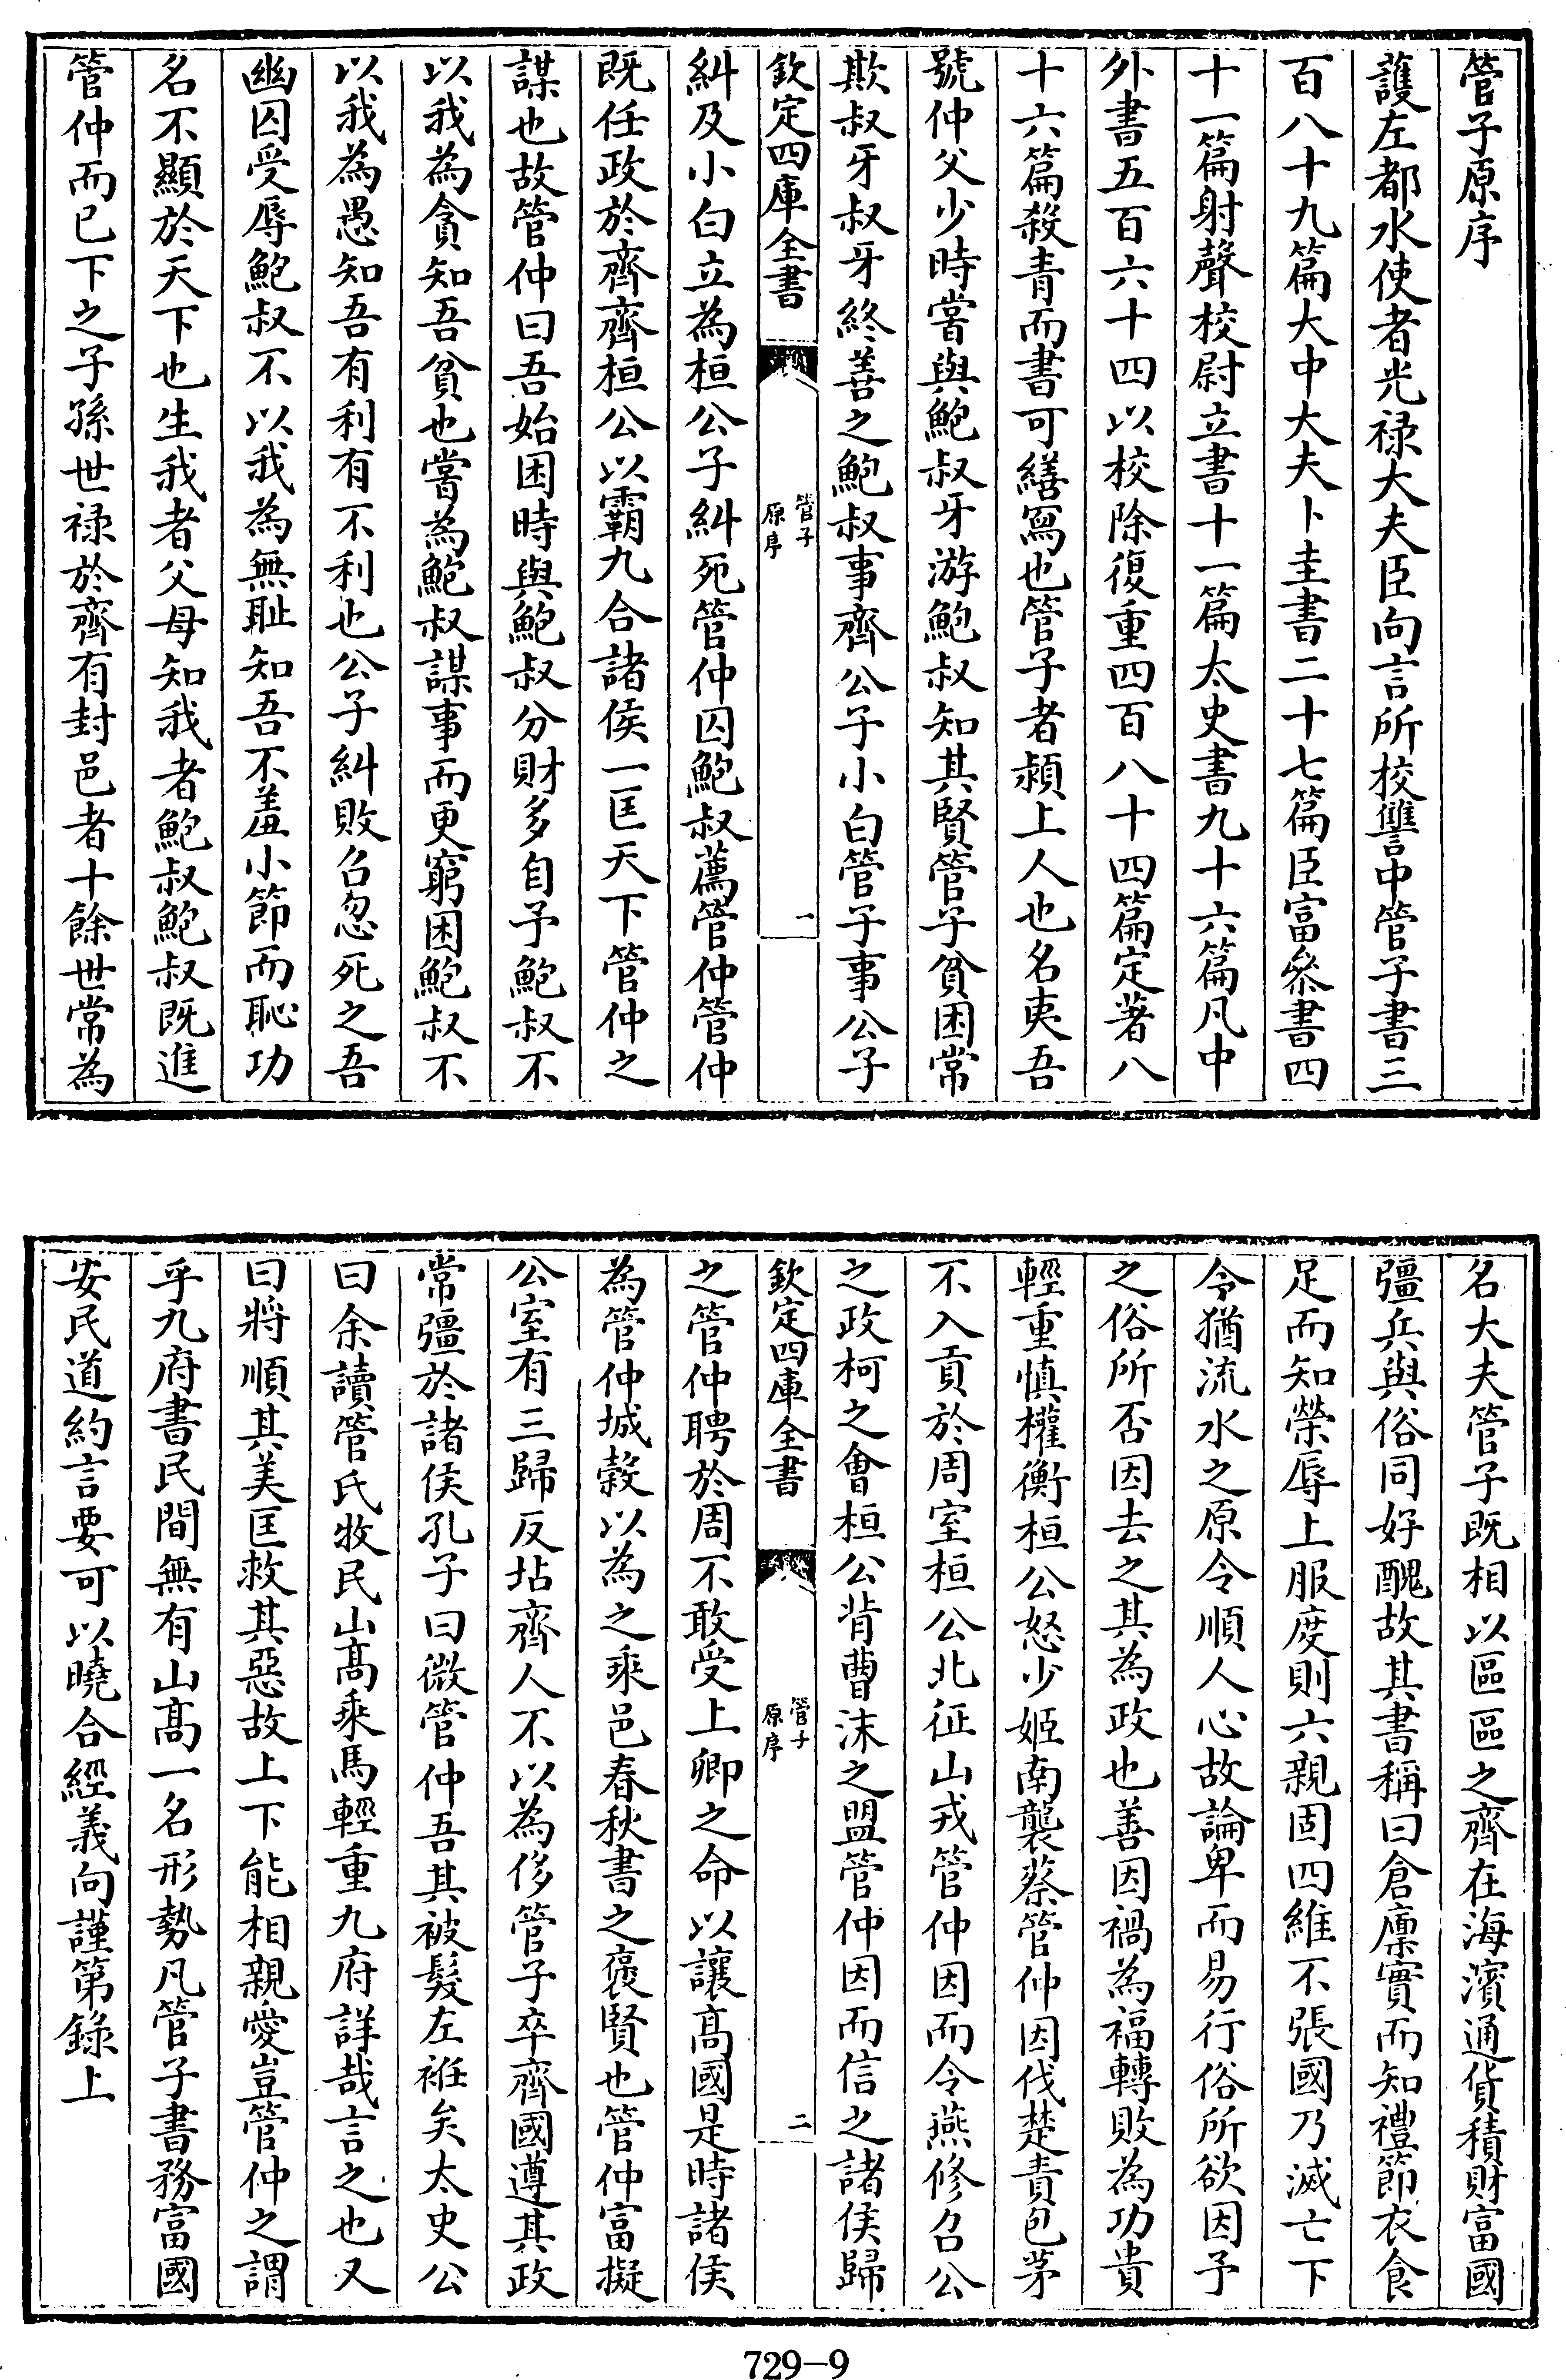 管子原序
護左都水使者光禄大夫臣向言所校讐中管子書三
百八十九篇大中大夫卜圭書二十七篇臣富參書四
十一篇射聲校尉立書十一篇太史書九十六篇凡中
外書五百六十四以校除復重四百八十四篇定著八
十六篇殺青而書可繕寫也管子者頴上人也名夷吾
號仲父少時嘗與鮑叔牙游鮑叔知其賢管子貧困常
欺叔牙叔牙終善之鮑叔事齊公子小白管子事公子
欽定四庫全書
管子
原序
一
糾及小白立為桓公子糾死管仲囚鮑叔薦管仲管仲
既任政於齊齊桓公以霸九合諸侯一匡天下管仲之
謀也故管仲曰吾始困時與鮑叔分財多自予鮑叔不
以我為貪知吾貧也嘗為鮑叔謀事而更窮困鮑叔不
以我為愚知吾有利有不利也公子糾敗召忽死之吾
幽囚受辱鮑叔不以我為無耻知吾不羞小節而恥功
名不顯於天下也生我者父母知我者鮑叔鮑叔既進
管仲而已下之子孫世禄於齊有封邑者十餘世常為
名大夫管子既相以區區之齊在海濱通貨積財富國
彊兵與俗同好醜故其書稱曰倉廩實而知禮節衣食
足而知榮辱上服度則六親固四維不張國乃滅亡下
令猶流水之原令順人心故論卑而易行俗所欲因予
之俗所否因去之其為政也善因禍為福轉敗為功貴
輕重慎權衡桓公怒少姬南襲蔡管仲因伐楚責包茅
不入貢於周室桓公北征山戎管仲因而令燕修召公
之政柯之會桓公背曹沫之盟管仲因而信之諸侯歸
欽定四庫全書
管子
原序
二
之管仲聘於周不敢受上卿之命以讓髙國是時諸侯
為管仲城榖以為之乘邑春秋書之襃賢也管仲富擬
公室有三歸反坫齊人不以為侈管子卒齊國遵其政
常彊於諸侯孔子曰微管仲吾其被髮左袵矣太史公
曰余讀管氏牧民山髙乘馬輕重九府詳哉言之也又
曰將順其美匡救其惡故上下能相親愛豈管仲之謂
乎九府書民間無有山髙一名形勢凡管子書務富國
安民道約言要可以曉合經義向謹第錄上
729-9